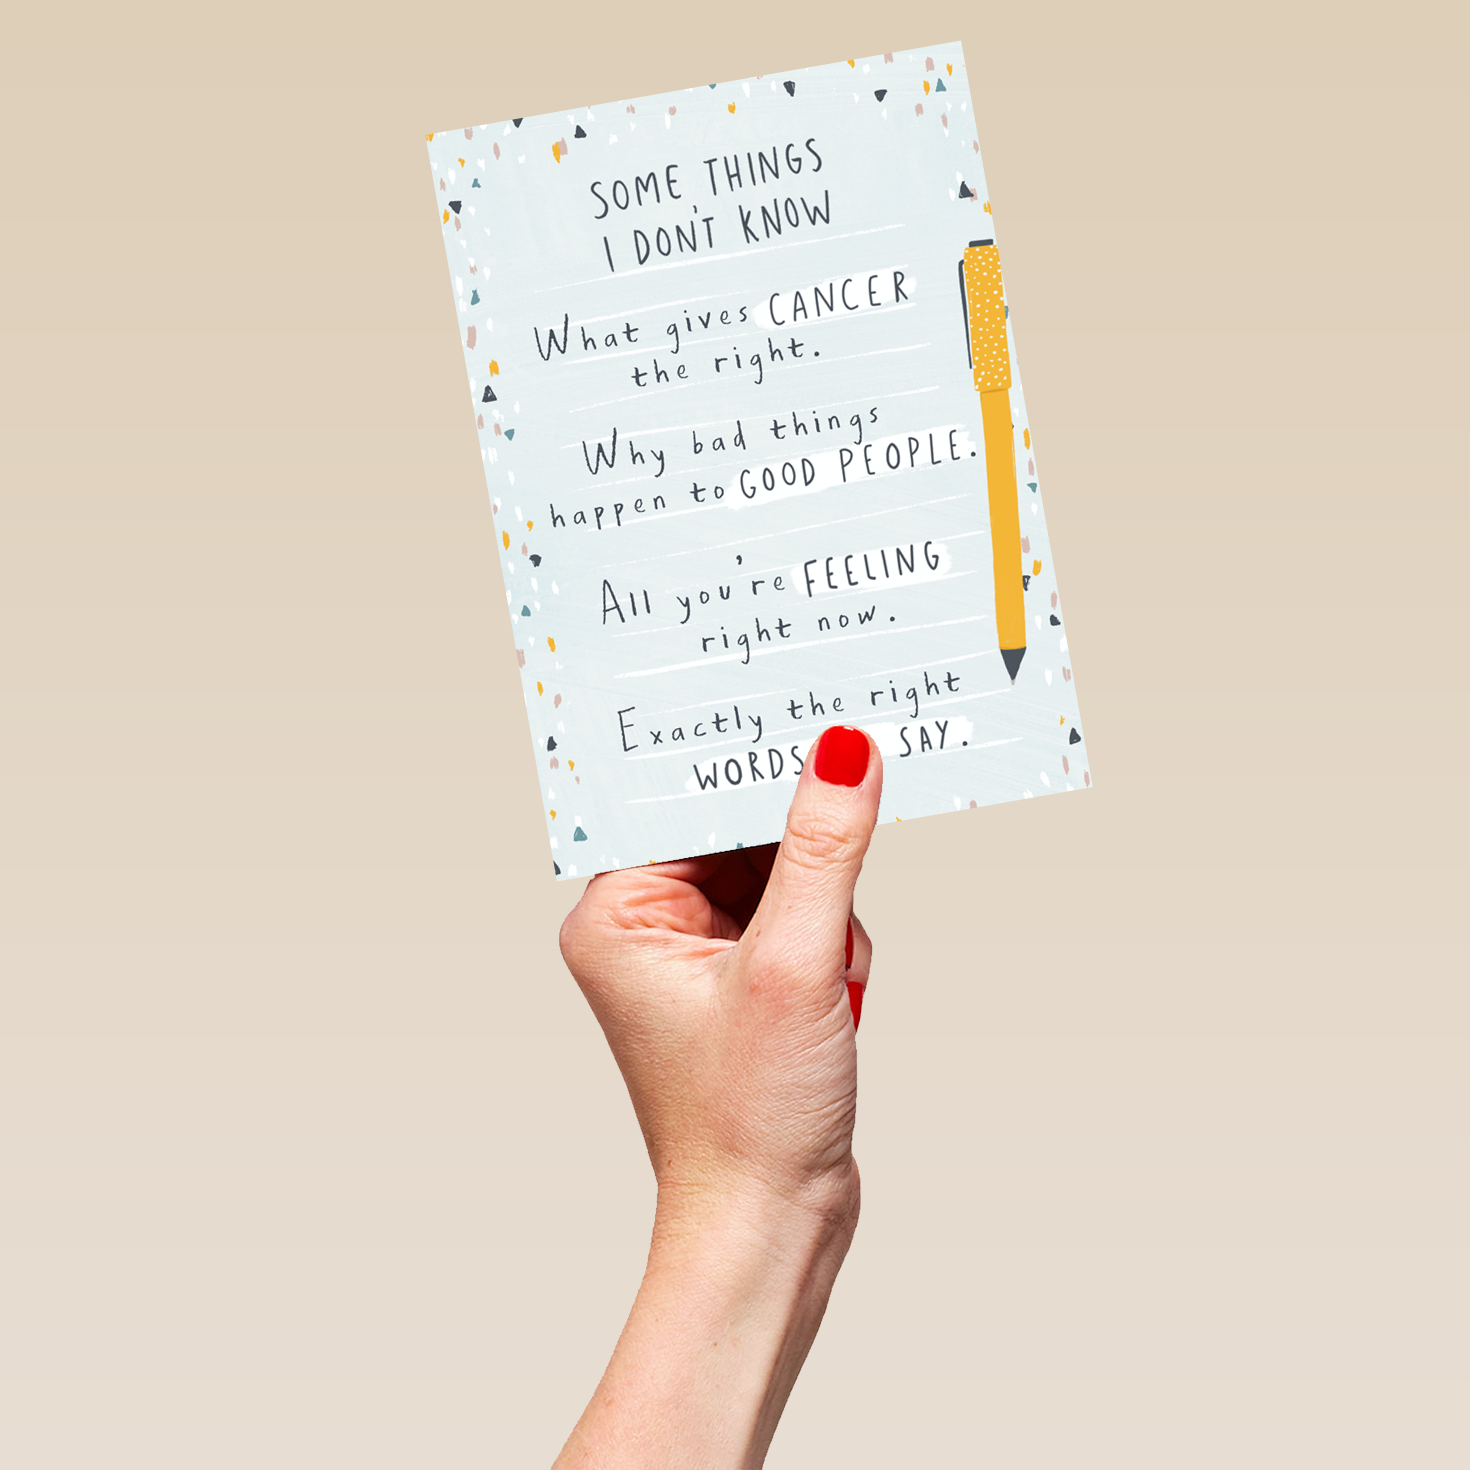 SOME THINGS
I DON'T KNOW
What gives CANCER
the right.
Why bad things
happen to GOOD PEOPLE.
All you're FEELING
right now.
Exactly the right
WORDS SAY.